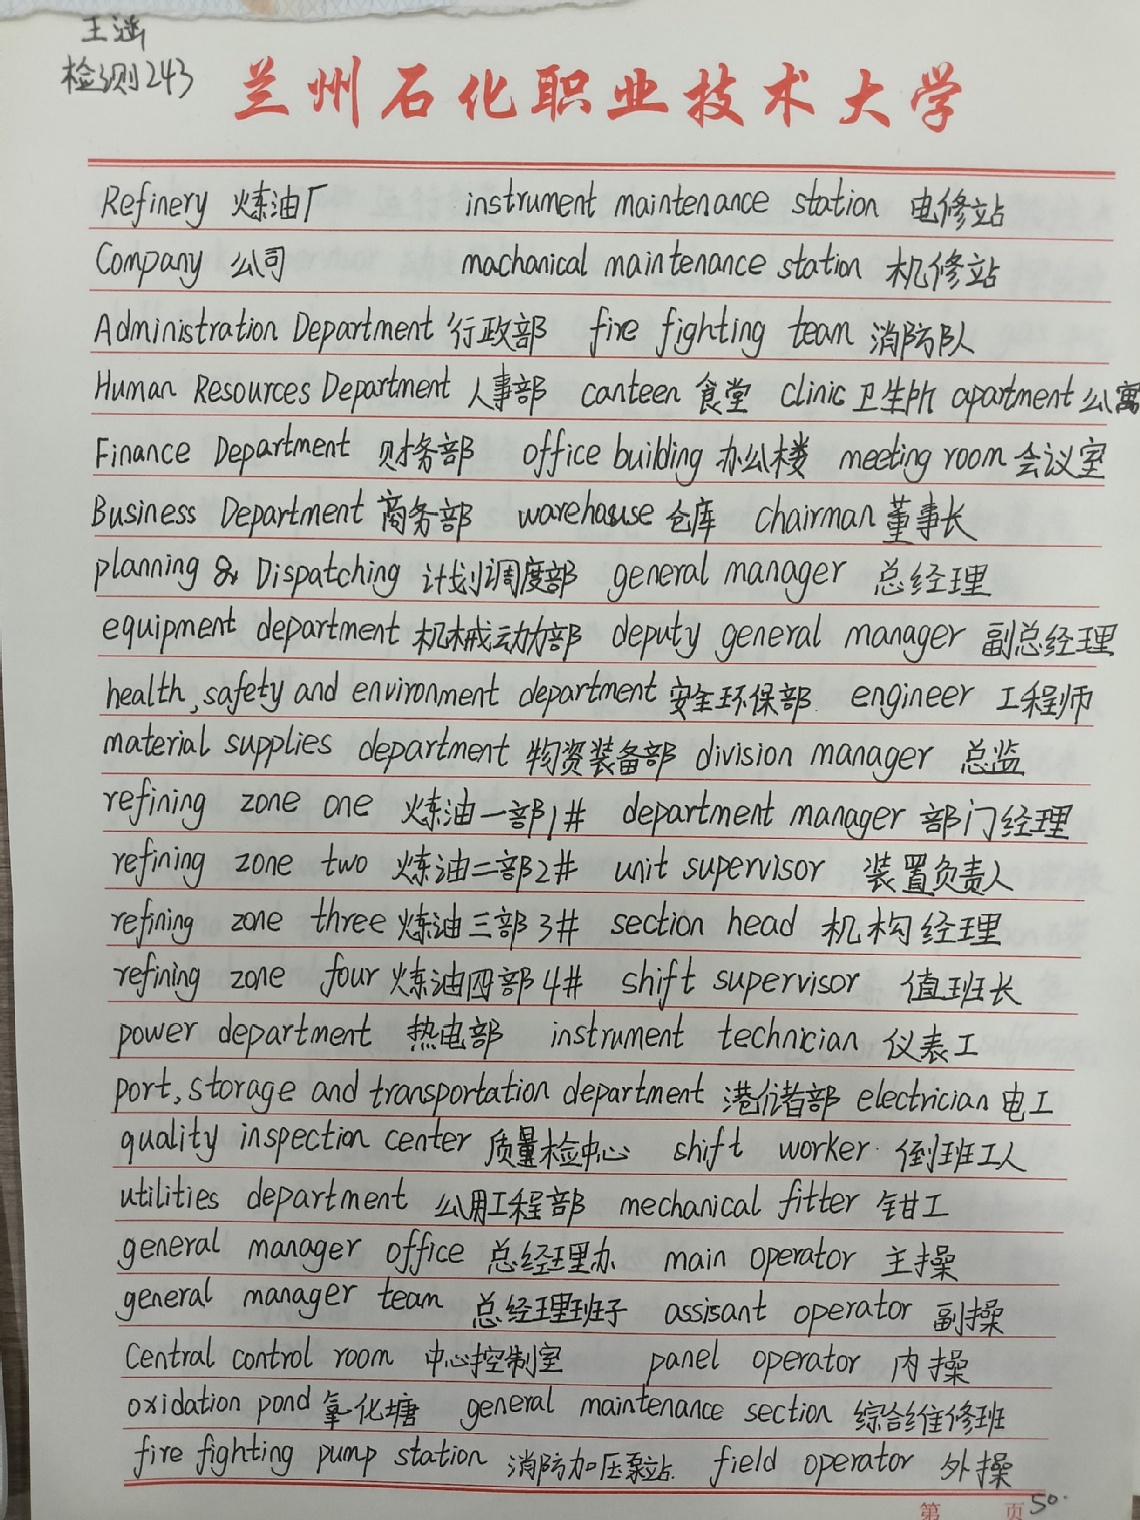 王涵
检测243
兰州石化职业技术大学
Refinery 炼油厂 instrument maintenance station 电修站
Company 公司 machanical maintenance station 机修站
Administration Department 行政部 fire fighting team 消防队
Human Resources Department 人事部 canteen 食堂 clinic 卫生所 apartment 公寓
Finance Department 财务部 office building 办公楼 meeting room 会议室
Business Department 商务部 warehouse 仓库 chairman 董事长
planning & Dispatching 计划调度部 general manager 总经理
equipment department 机械动力部 deputy general manager 副总经理
health, safety and environment department 安全环保部 engineer 工程师
material supplies department 物资装备部 division manager 总监
refining zone one 炼油一部1# department manager 部门经理
refining zone two 炼油二部2# unit supervisor 装置负责人
refining zone three 炼油三部3# section head 机构经理
refining zone four 炼油四部4# shift supervisor 值班长
power department 热电部 instrument technician 仪表工
port, storage and transportation department 港储部 electrician 电工
quality inspection center 质量检中心 shift worker 倒班工人
utilities department 公用工程部 mechanical fitter 钳工
general manager office 总经理办 main operator 主操
general manager team 总经理班子 assisant operator 副操
Central control room 中心控制室 panel operator 内操
oxidation pond 氧化塘 general maintenance section 综合维修班
fire fighting pump station 消防加压泵站. field operator 外操
第 页 50.